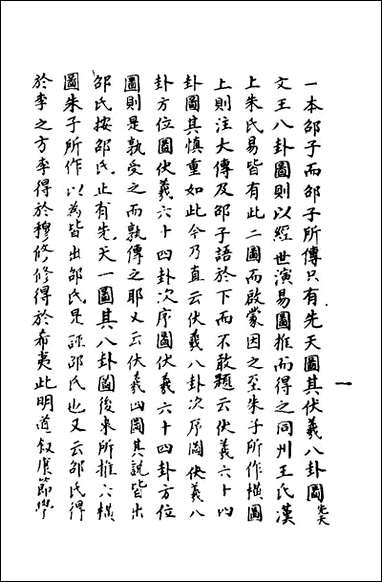 一本邵子而邵子所傳只有先天圖其伏羲八卦圖先天
文王八卦圖則以經世演易圖推而得之同州王氏漢
上朱氏易皆有此二圖而啟蒙因之至朱子所作橫圖
上則注大傳及邵子語於下而不敢題云伏羲六十四
卦圖其慎重如此今乃直云伏羲八卦次序圖伏羲八
卦方位圖伏羲六十四卦次序圖伏羲六十四卦方位
圖則是孰受之而孰傳之耶又云伏羲四圖其說皆出
邵氏按邵氏止有先天一圖其八卦圖後來所推六橫
圖朱子所作以為皆出邵氏是誣邵氏也又云邵氏得
於李之方李得於穆修修得於希夷此明道叙康節學
一